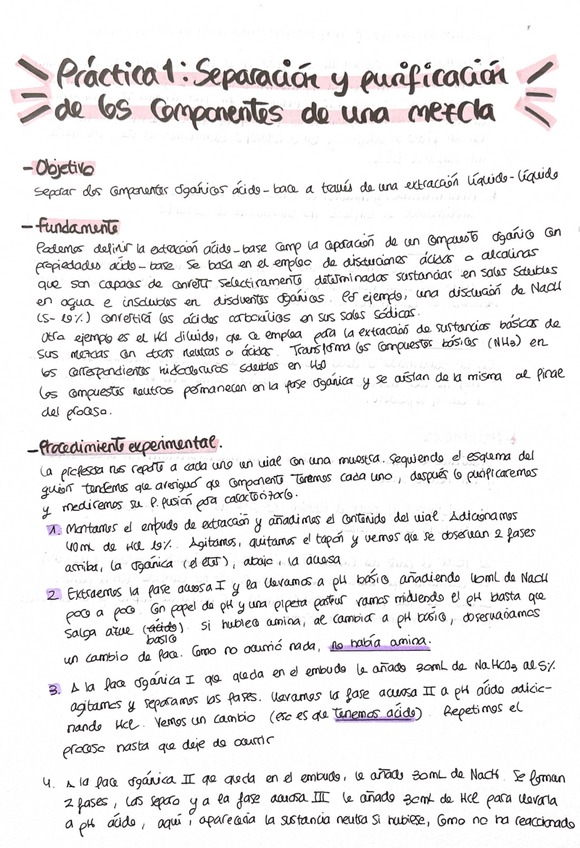 Práctica 1: Separación y purificación
de los componentes de una mezcla
- Objetivo
Separar dos componentes orgánicos ácido-base a través de una extracción líquido-líquido
- Fundamento
Podemos definir la extracción ácido-base como la separación de un compuesto orgánico con
propiedades ácido-base. Se basa en el empleo de disoluciones ácidas o alcalinas
que son capaces de convertir selectivamente determinadas sustancias en sales solubles
en agua e insolubles en disolventes orgánicos. Por ejemplo, una disolución de NaOH
(5-10%) convertirá los ácidos carboxílicos en sus sales sódicas.
Otro ejemplo es el HCl diluido, que se emplea para la extracción de sustancias básicas de
sus mezclas con otras neutras o ácidas. Transforma los compuestos básicos (NH2) en
los correspondientes hidrocloruros solubles en H2O
Los compuestos neutros permanecen en la fase orgánica y se aíslan de la misma al final
del proceso.
- Procedimiento experimental.
La profesora nos reparte a cada uno un vial con una muestra. Siguiendo el esquema del
guion tendremos que averiguar que componente tenemos cada uno, después lo purificaremos
y mediremos su P. fusión para caracterizarlo.
1. Montamos el embudo de extracción y añadimos el contenido del vial. Adicionamos
40mL de HCl 10%. Agitamos, quitamos el tapón y vemos que se observan 2 fases
arriba, la orgánica (el eter), abajo, la acuosa
2. Extraemos la fase acuosa I y la llevamos a pH básico añadiendo 40mL de NaOH
poco a poco. Con papel de pH y una pipeta pasteur vamos midiendo el pH hasta que
salga azul (ácido) básico. Si hubiese amina, al cambiar a pH básico, observaríamos
un cambio de fase. Como no ocurrió nada, no había amina.
3. A la fase orgánica I que queda en el embudo le añado 30mL de NaHCO3 al 5%.
agitamos y separamos las fases. Llevamos la fase acuosa II a pH ácido adicio-
nando HCl. Vemos un cambio (eso es que tenemos ácido). Repetimos el
proceso hasta que deje de ocurrir
4. A la fase orgánica II que queda en el embudo, le añado 30mL de NaOH. Se forman
2 fases, las separo y a la fase acuosa III le añado 30mL de HCl para llevarla
a pH ácido, aquí, aparecería la sustancia neutra si hubiese, como no ha reaccionado